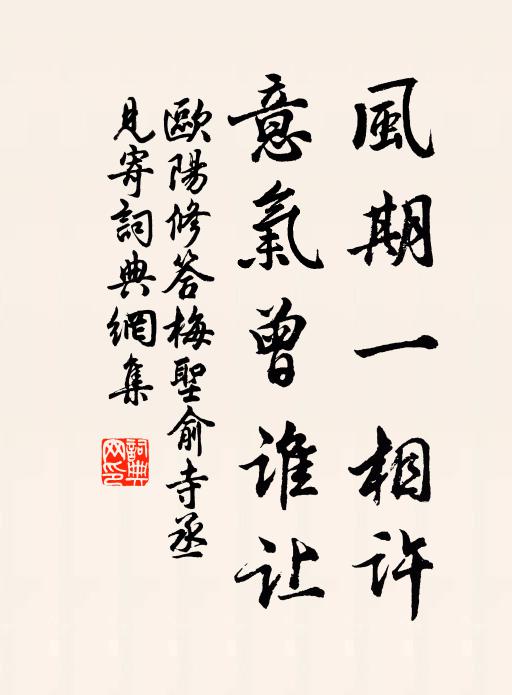 風期一相許
意氣曾誰让
歐陽修答梅聖俞寺丞
見寄詞典網集
詞典
网印